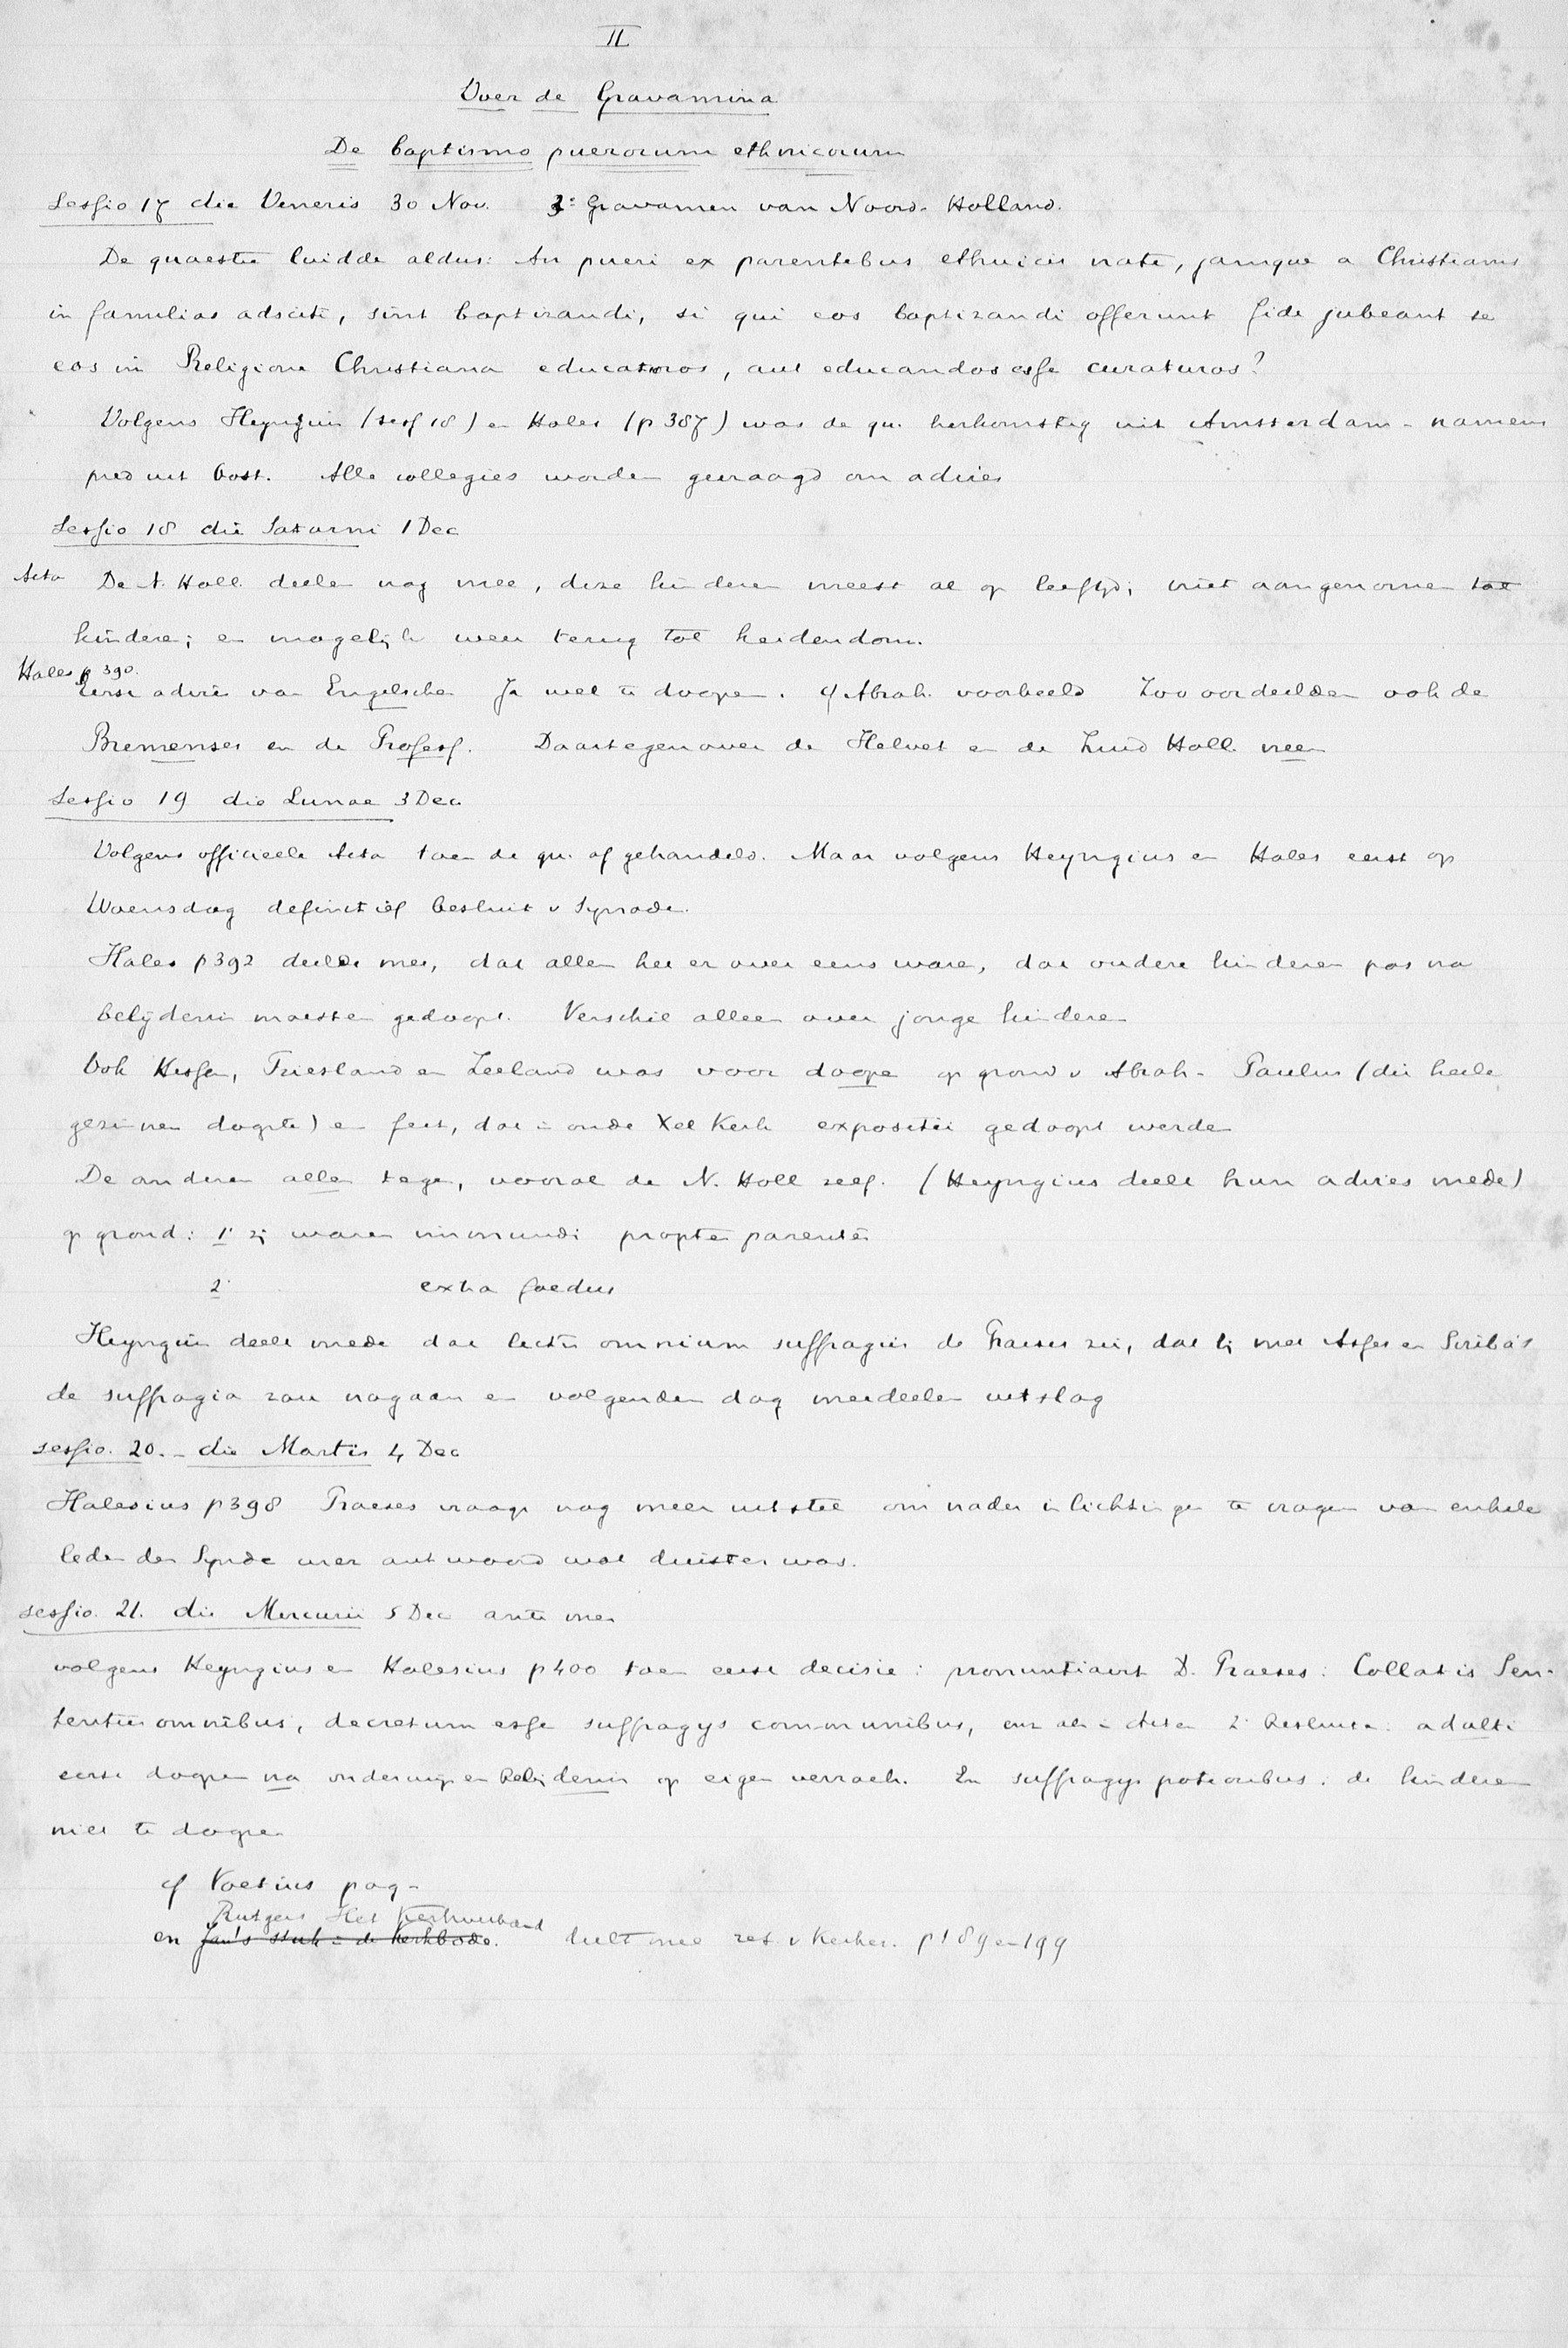 II
Over de Gravamina
De baptismo puerorum ethnicorum
Sessio 17 die Veneris 30 Nov. 3e Gravamen van Noord-Holland.
De quaestie luidde aldus: An pueri ex parentibus ethnicis nati, jamque a Christianis
in familias adsciti, sint baptizandi, si qui eos baptizandi offerunt fide jubeant se
eos in Religione Christiana educaturos, aut educandos esse curaturos?
Volgens Heyngius (sess 18) en Hales (p 387) was de qu. herkomstig uit Amsterdam - namens
pred uit Oost. Alle collegies worden gevraagd om advies
Sessio 18 die Saturni 1 Dec
Acta De N. Holl. deelen nog mee, deze kinderen meest al op leeftijd; niet aangenomen tot
kinderen; en mogelijk weer terug tot heidendom.
Hales p 390.
Eerst advies van Engelschen Ja wel te doopen. cf Abrah. voorbeeld Zoo oordeelden ook de
Bremenses en de Professs. Daartegenover de Helvet en de Zuid Holl. neen
Sessio 19 die Lunae 3 Dec
Volgens officieele Acta toen de qu. afgehandeld. Maar volgens Heyngius en Hales eerst op
Woensdag definitief besluit v Synode.
Hales p 392 deelde mee, dat allen het er over eens waren, dat oudere kinderen pas na
belijdenis moesten gedoopt. Verschil alleen over jonge kinderen
Ook Hessen, Friesland en Zeeland was voor doopen op grond v Abrah - Paulus (die heele
gezinnen doopte) en feit, dat in oude Xel Kerk expositii gedoopt werden
De anderen allen tegen, vooral de N. Holl zelf. (Heyngius deelt hun advies mede)
op grond: 1. zij waren immundi propter parentes
2. extra foedus
Heyngius deelt mede dat lectis omnium suffragiis de Praeses zei, dat hij met Asses en Scriba's
de suffragia zou nagaan en volgenden dag meedeelen uitslag
sessio. 20. - die Martis 4 Dec
Halesius p 398 Praeses vraagt nog meer uitstel om nader inlichtingen te vragen van enkele
leden der Synode wier antwoord wat duister was.
sessio. 21. die Mercurii 5 Dec ante mer
volgens Heyngius en Halesius p 400 toen eerst decisie: pronuntiavit D. Praeses: Collatis Sen-
tentiis omnibus, decretum esse suffragys communibus, enz als in Acten 2. Besluiten: adulti
eerst doopen na onderwijs en Belijdenis op eigen verzoek. En suffragys potioribus: de kinderen
niet te doopen
cf Voetius pag -
Rutgers Het Kerkverband
en Jan's stuk in de Kerkbode. deelt mee res. v Kerker. p 189 en 199